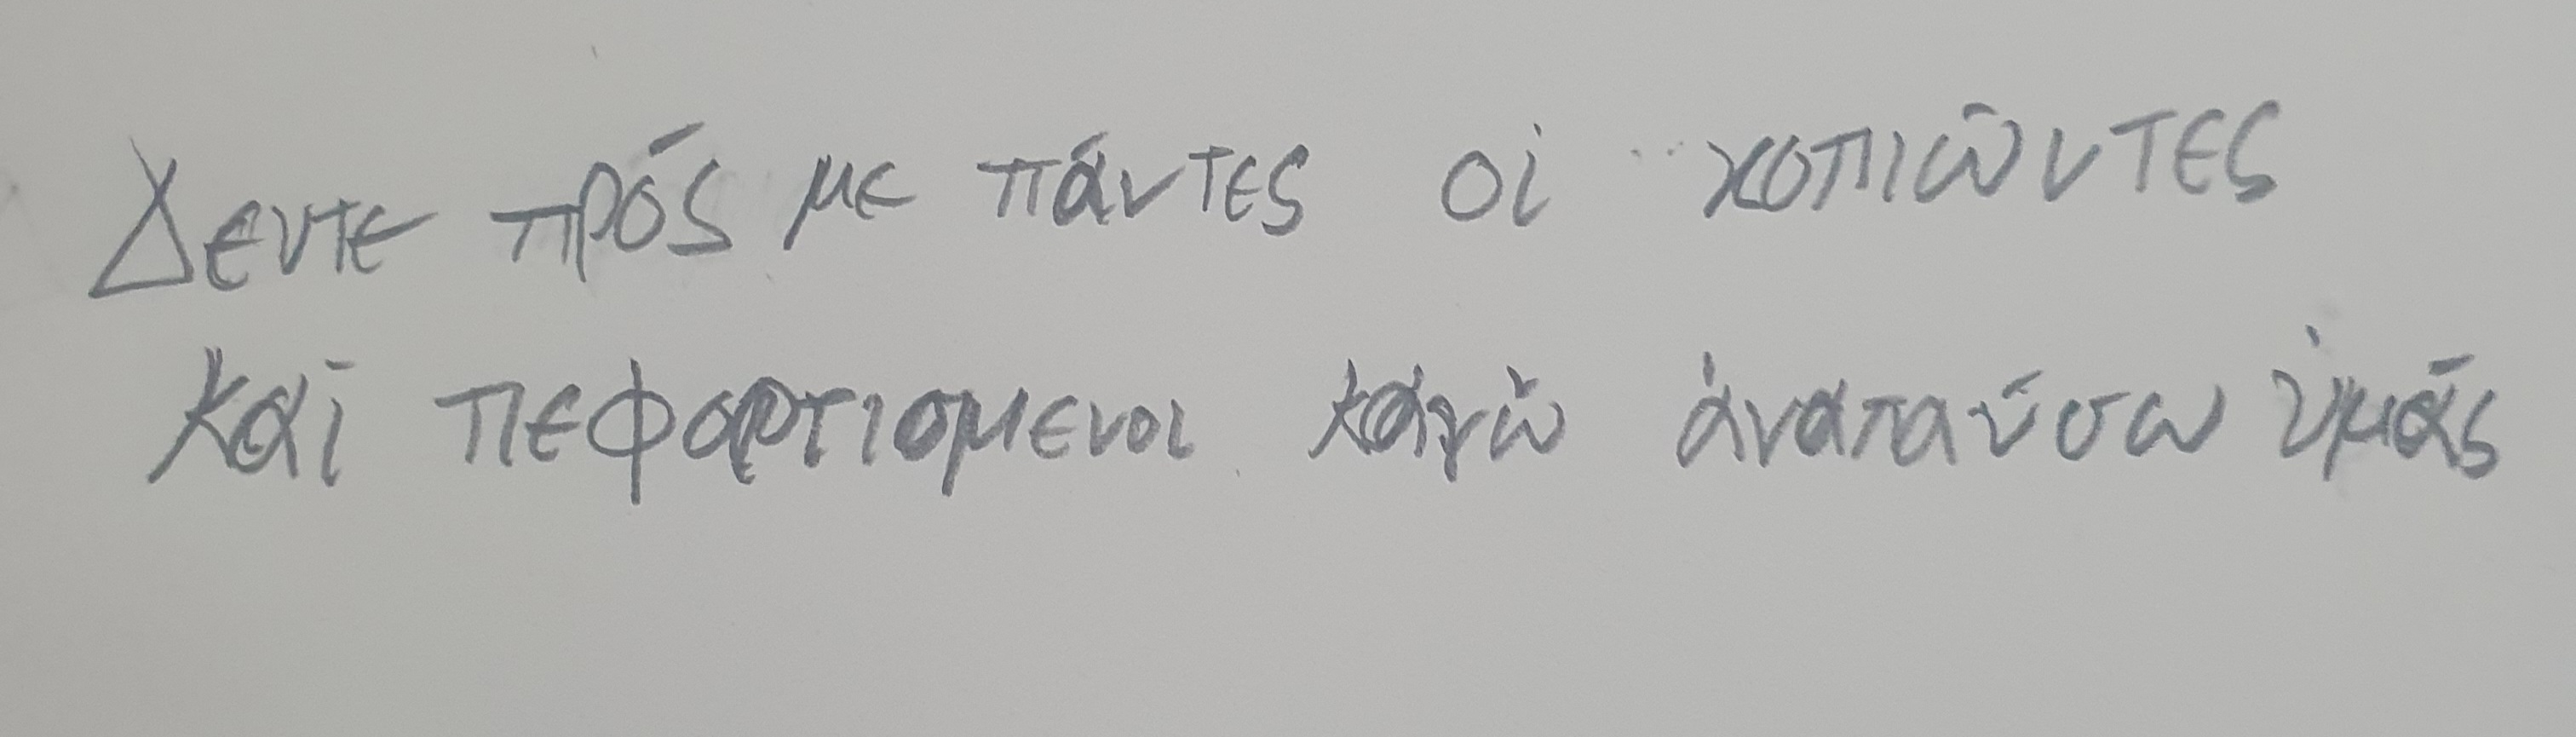 Δευτε πρός με πάντες οἱ κοπιῶντες
καὶ πεφορτισμενοι κἀγὼ ἀναπαύσω ὑμᾶς